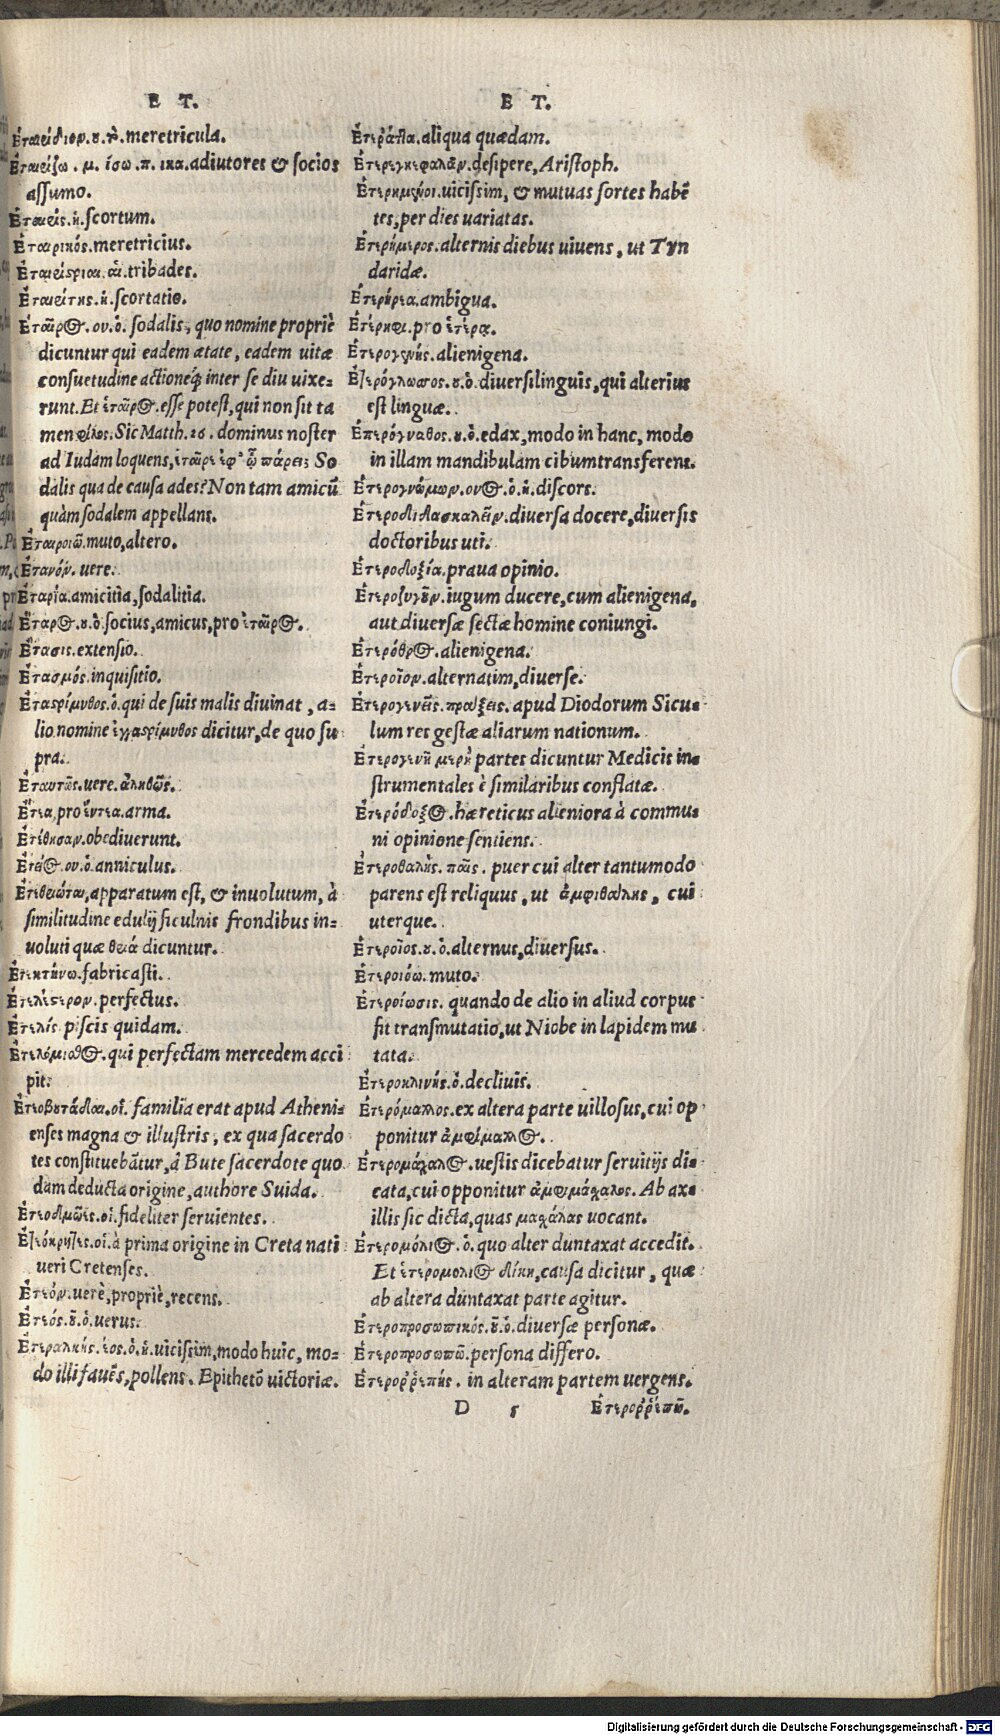 E T.
Ἑταιρίδιον. ου. τὸ. meretricula.
Ἑταιρίζω. μ. ίσω. π. ικα. adiutores & socios
assumo.
Ἑταιρίς. ἡ. scortum.
Ἑταιρικός. meretricius.
Ἑταιρίστριαι. αἱ. tribades.
Ἑταιρίτης. ἡ. scortatio.
Ἑταῖρος. ου. ὁ. sodalis, quo nomine propriè
dicuntur qui eadem ætate, eadem uitæ
consuetudine actioneq́; inter se diu uixe-
runt. Et ἑταῖρος. esse potest, qui non sit ta
men φίλος. Sic Matth. 26. dominus noster
ad Iudam loquens, ἑταῖρε ἐφ' ᾧ πάρει; So
dalis qua de causa ades? Non tam amicũ
quàm sodalem appellans.
Ἑταιροιῶ. muto, altero.
Ἐτανόν. uere.
Ἑταρία. amicitia, sodalitia.
Ἕταρος. ου. ὁ. socius, amicus, pro ἑταῖρος.
Ἔτασις. extensio.
Ἐτασμός. inquisitio.
Ἐταστρίμυθος. ὁ. qui de suis malis diuinat, a-
lio nomine ἐγγαστρίμυθος dicitur, de quo su
pra.
Ἐταυτῶς. uere. ἀληθῶς.
Ἔτεα, pro ἔντεα. arma.
Ἐτέθησαν. obediuerunt.
Ἐτεός. ου. ὁ. anniculus.
Ἐτεθείωται, apparatum est, & inuolutum, à
similitudine edulij ficulnis frondibus in-
uoluti quæ θειά dicuntur.
Ἐτεκτήνω. fabricasti.
Ἐτελέστερον. perfectus.
Ἐτελίς piscis quidam.
Ἐτελόμισθος. qui perfectam mercedem acci
pit.
Ἐτεοβουτάδαι. οἱ. familia erat apud Atheni-
enses magna & illustris, ex qua sacerdo
tes constituebãtur, à Bute sacerdote quo
dam deducta origine, authore Suida.
Ἐτεοδμῶες. οἱ. fideliter seruientes.
Ἐτεόκρητες. οἱ. à prima origine in Creta nati
ueri Cretenses.
Ἐτεόν. uerè, propriè, recens.
Ἐτεός. οῦ. ὁ. uerus.
Ἑτεραλκής. έος. ὁ. ἡ. uicissim, modo huic, mo-
do illi fauẽs, pollens. Epithetõ uictoriæ.
E T.
Ἑτερᾶττα. aliqua quædam.
Ἑτερεγκεφαλᾶν. desipere, Aristoph.
Ἑτερημένοι. uicissim, & mutuas sortes habẽ
tes, per dies uariatas.
Ἑτερήμερος. alternis diebus uiuens, ut Tyn
daridæ.
Ἑτερήρεα. ambigua.
Ἑτέρηφι. pro ἑτέρᾳ.
Ἑτερογενής. alienigena.
Ἑτερόγλωσσος. ου. ὁ. diuersilinguis, qui alterius
est linguæ.
Ἑτερόγναθος. ου. ὁ. edax, modo in hanc, modo
in illam mandibulam cibum transferens.
Ἑτερογνώμων. ονος. ὁ. ἡ. discors.
Ἑτεροδιδασκαλεῖν. diuersa docere, diuersis
doctoribus uti.
Ἑτεροδοξία. praua opinio.
Ἑτεροζυγεῖν. iugum ducere, cum alienigena,
aut diuersæ sectæ homine coniungi.
Ἑτερόθρος. alienigena.
Ἑτεροῖον. alternatim, diuerse.
Ἑτερογενεῖς. πράξεις. apud Diodorum Sicu-
lum res gestæ aliarum nationum.
Ἑτερογενῆ μερὴ partes dicuntur Medicis in-
strumentales è similaribus conflatæ.
Ἑτερόδοξος. hæreticus alieniora à commu-
ni opinione sentiens.
Ἑτεροθαλής. παῖς. puer cui alter tantumodo
parens est reliquus, ut ἀμφιθαλής, cui
uterque.
Ἑτεροῖος. ου. ὁ. alternus, diuersus.
Ἑτεροιόω. muto.
Ἑτεροίωσις. quando de alio in aliud corpus
fit transmutatio, ut Niobe in lapidem mu
tata.
Ἑτεροκλινής. ὁ. decliuis.
Ἑτερόμαλλος. ex altera parte uillosus, cui op
ponitur ἀμφίμαλλος.
Ἑτερομάχαλος. uestis dicebatur seruitijs di-
cata, cui opponitur ἀμφιμάχαλος. Ab axi
illis sic dicta, quas μαχάλας uocant.
Ἑτερομόλιος. ὁ. quo alter duntaxat accedit.
Et ἑτερομόλιος δίκη, causa dicitur, quæ
ab altera duntaxat parte agitur.
Ἑτεροπροσωπικός. οῦ. ὁ. diuersæ personæ.
Ἑτεροπροσωπῶ. persona differo.
Ἑτεροῤῥεπής. in alteram partem uergens.
D 5 Ἑτεροῤῥεπῶ.
Digitalisierung gefördert durch die Deutsche Forschungsgemeinschaft - DFG